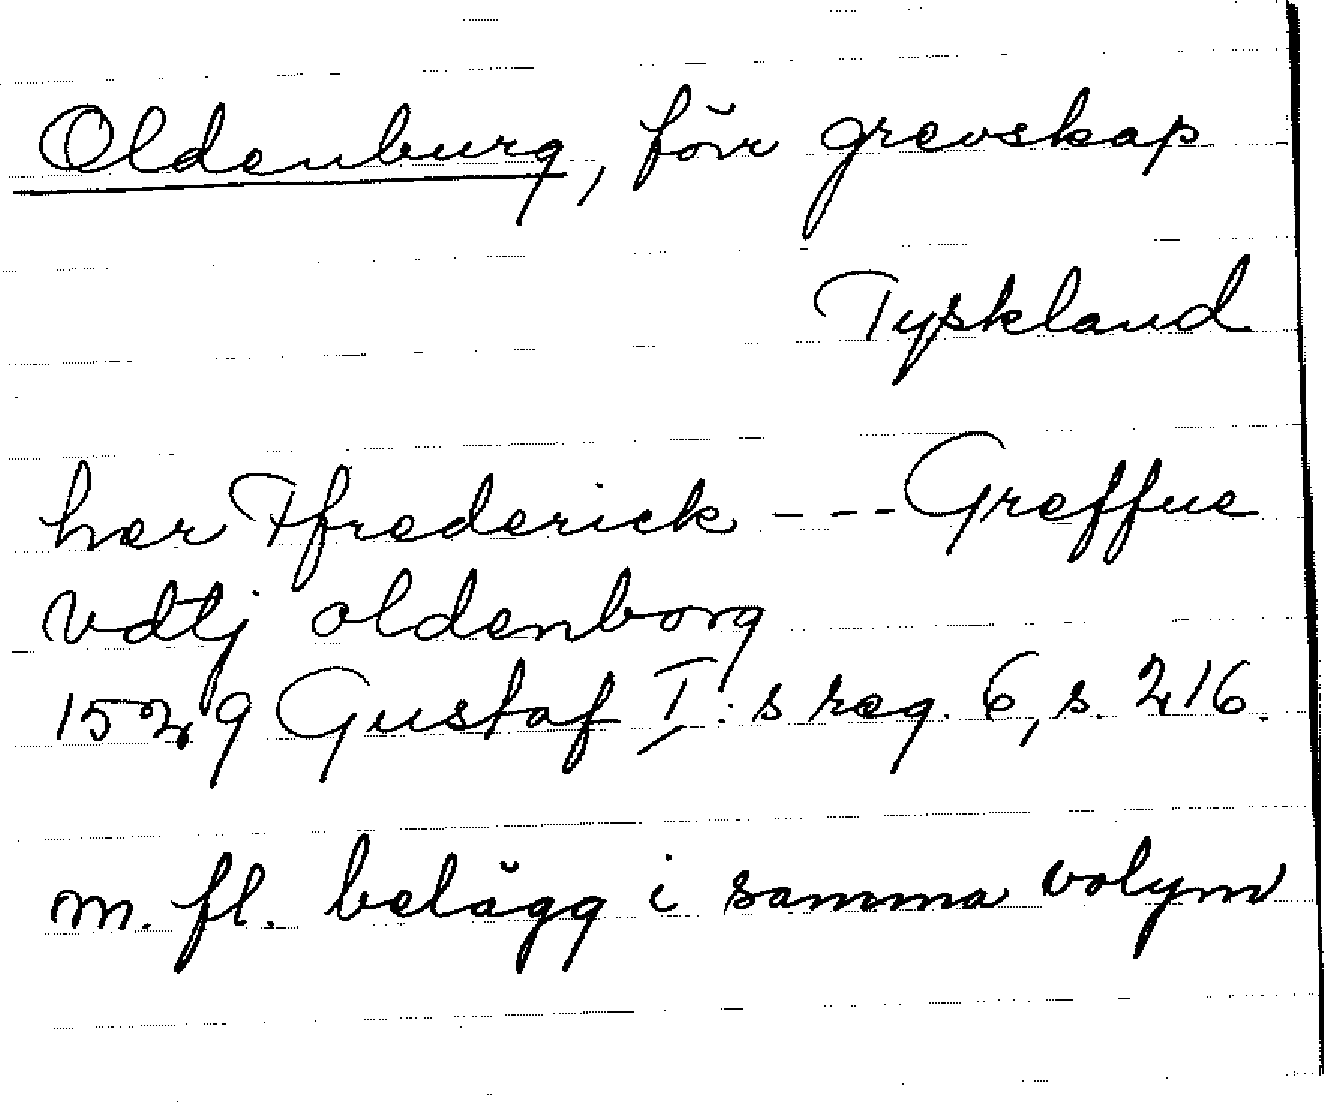 Oldenburg, förr grevskap
Tyskland
her Ffrederick --- Greffue
vdtj oldenborg
1529 Gustaf I:s reg. 6, s. 216.
m. fl. belägg i samma volym